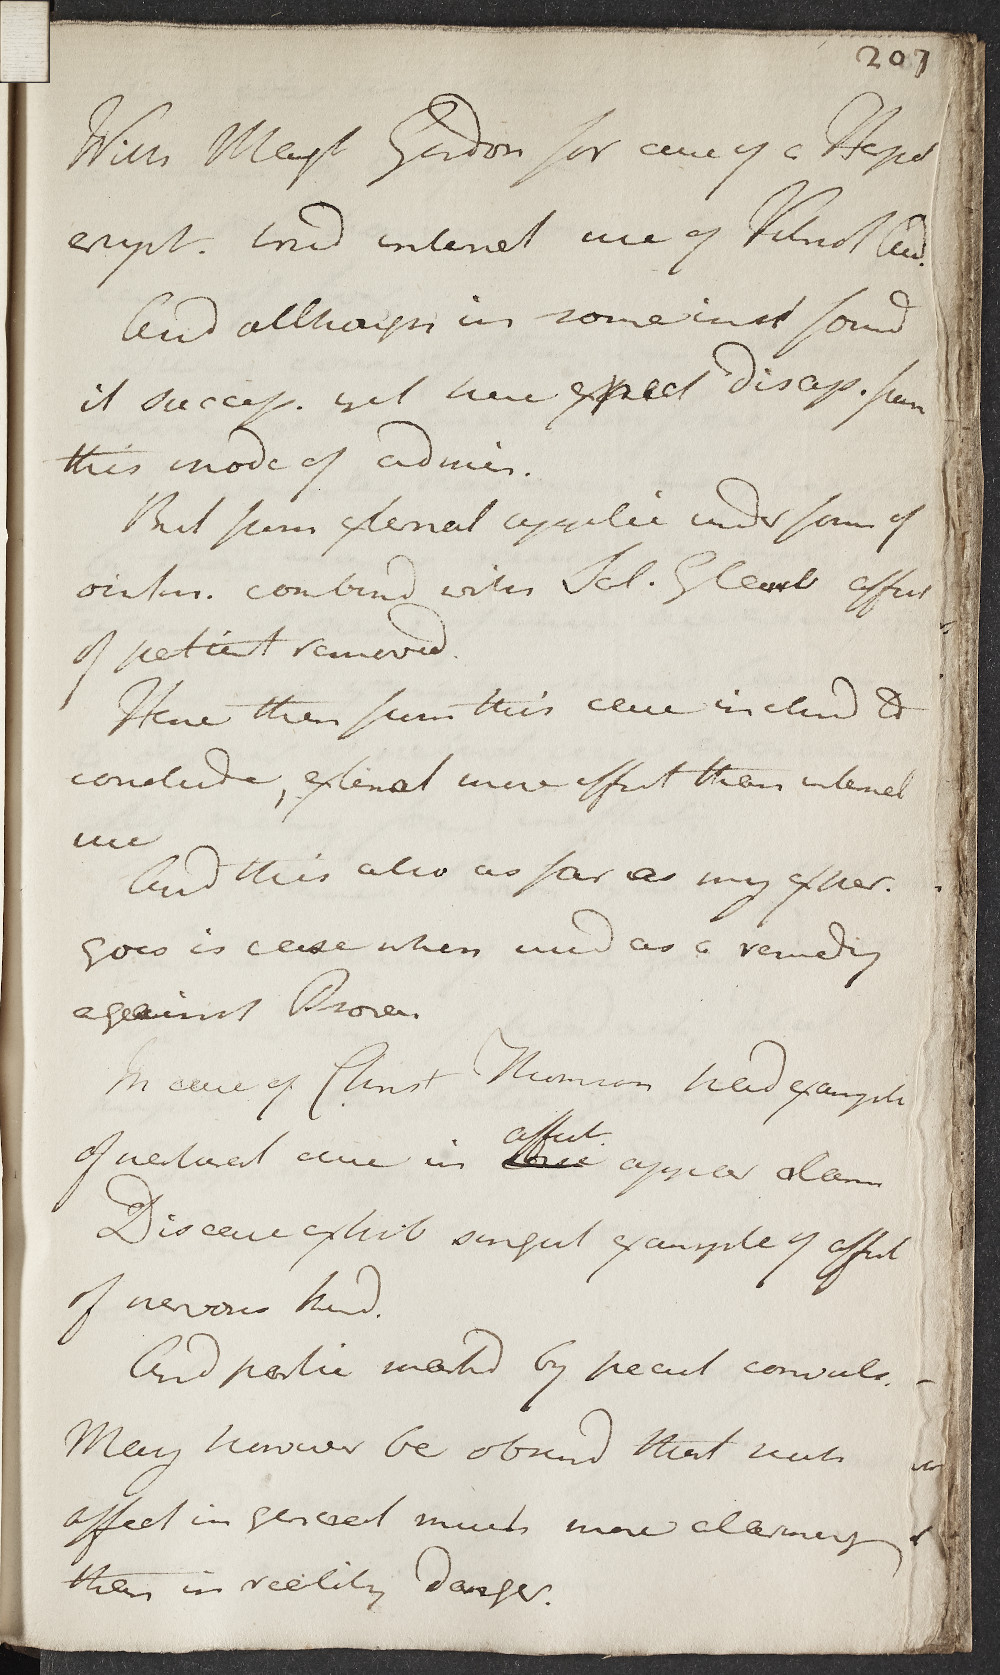 207
With Margt Gordon for cure of a Herpet
erupt. tried internal use of Vitriol Acid.
And although in some inst found
it success. yet here expect disapp. from
this mode of admin.
But from external applic under form of
ointm. combined with Sal. Glaub affect
of patient removed.
Here then from this case inclind to
conclude, external more effect than internal
use
And this also as far as my exper.
goes is case when used as a remedy
against Psora.
In case of Christ Thomson had example
of natural cure in affect. appar alarm
Disease exhib singul example of affect
of nervous kind.
And partic markd by pecul convuls.
May however be observd that such
affect in general much more alarming
than in reality danger.